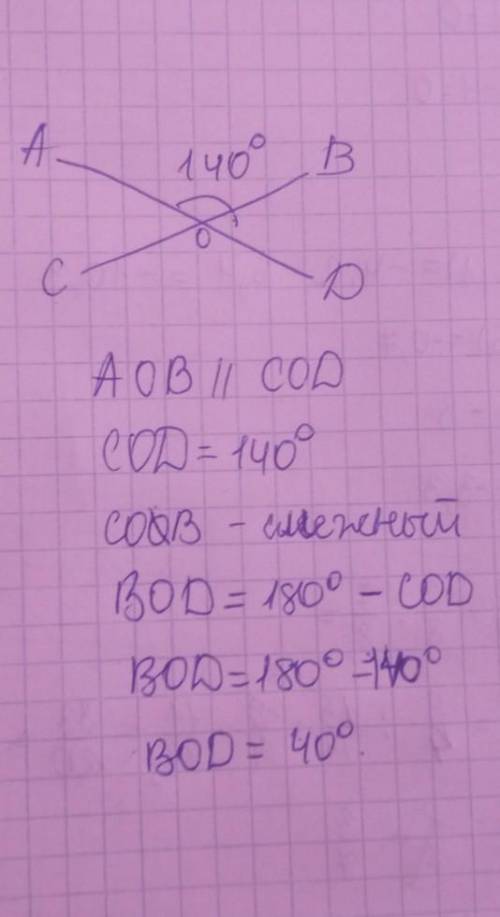 A 140° B
O
C D
AOB || COD
COD = 140°
COB - смежный
BOD = 180° - COD
BOD = 180° - 140°
BOD = 40°.